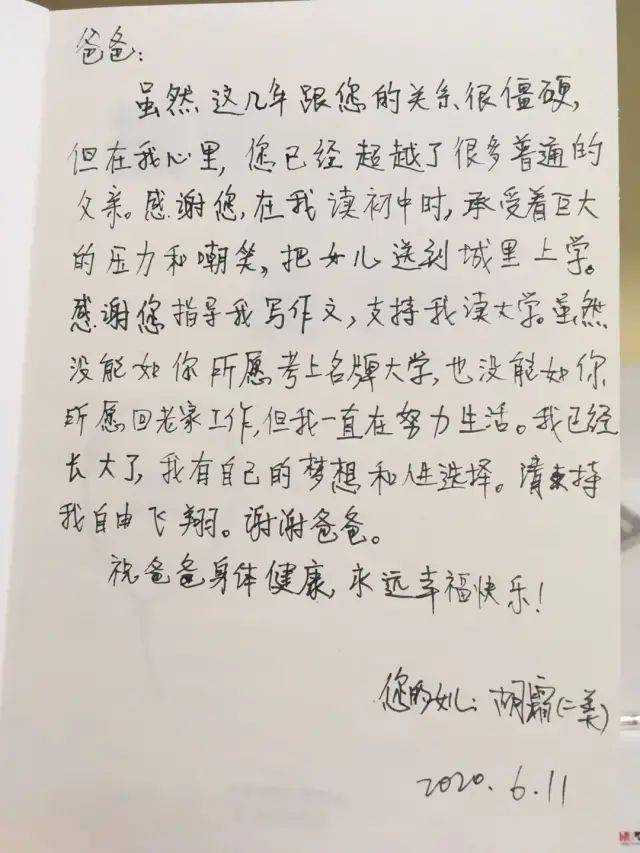 爸爸:
虽然这几年跟您的关系很僵硬,
但在我心里,您已经超越了很多普通的
父亲。感谢您,在我读初中时,承受着巨大
的压力和嘲笑,把女儿送到城里上学。
感谢您指导我写作文,支持我读大学。虽然
没能如你所愿考上名牌大学,也没能如你
所愿回老家工作,但我一直在努力生活。我已经
长大了,我有自己的梦想和人生选择。请支持
我自由飞翔。谢谢爸爸。
祝爸爸身体健康,永远幸福快乐!
您的女儿:胡霜(二美)
2020.6.11